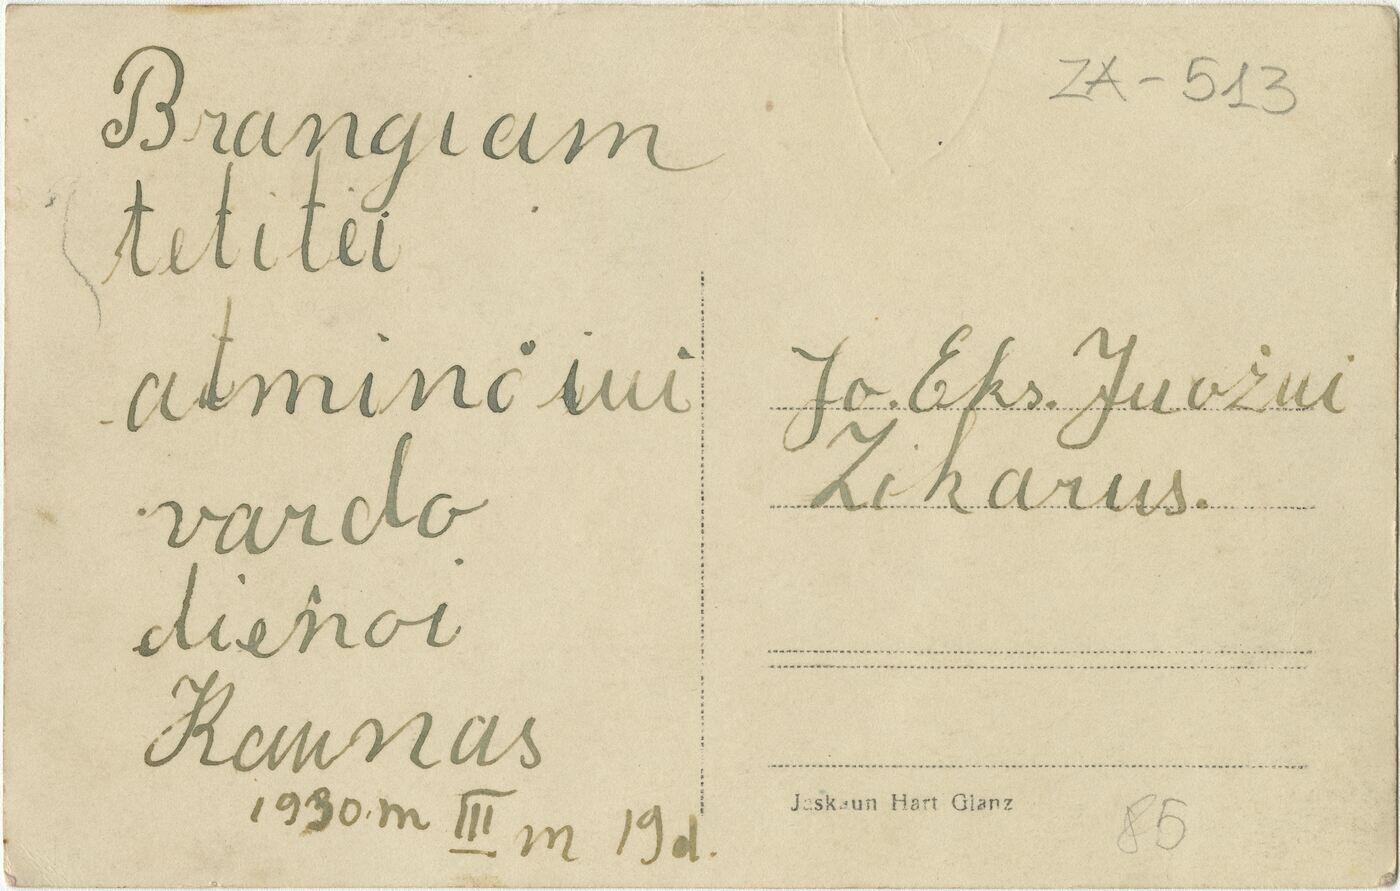 Brangiam
tetitei
atminčiui
vardo
dienoi
Kaunas
1930.m III m 19 d.
ZA-513
Jo. Eks. Juozui
Zikarus.
Jaskaun Hart Glanz
85